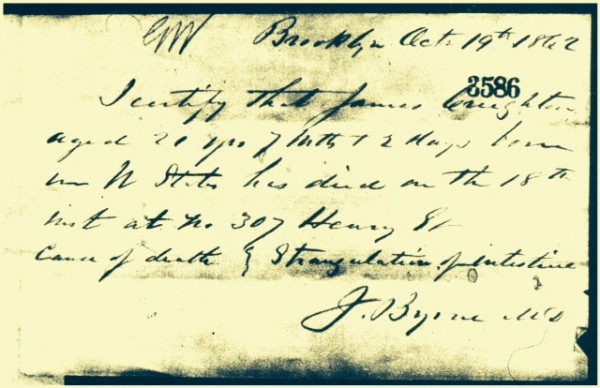 GW Brooklyn Oct 19th 1862
3586
I certify that James Creighton
aged 21 yrs 7 Mths & 2 days born
in U States has died on the 18th
inst at No 307 Henry St
Cause of death } Strangulation of intestine
J. Byrne MD